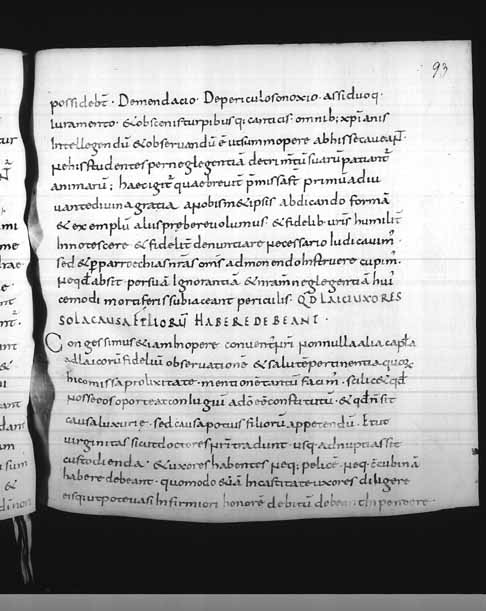 93
possidebt̄ · De mendacio · De periculoso noxio · assiduoq·
iuramento · & obscenis turpibusq; canticis · omnib; xp̄ianis
Intellegendū & observandū ē ut summopere ab his se caveaN̄ ·
Ne his studentes per neglegentiā detrim̄tū suarū patiant᷒
animarū; haec igit᷒ quae brevit̄ p̄missa st̄ primū adiu
vante divina gratia a nobismet ipsis abdicando formā
& exemplū aliis prebere volumus · & fidelib· vr̄is humilit̄
Innotescere & fidelit̄ denuntiare necessario Iudicavim᷒ ·
sed & p parrochias nr̄as om̄s admonendo Instruere cupim᷒ ·
Neqd̄ absit per suā Ignorantiā & nr̄am neglegentiā hui᷒
cemodi mortiferis subiaceant periculis · QD̄ LAICI UXORES
SOLA CAUSA FILIORŪ HABERE DEBEANT ·
Congessimus etiam hopere conventui nr̄i nonnulla alia capl̄a
ad laicorū fideliū observationē & salutē pertinentia quoꝝ
hic omissa prolixitate · mentionē tantū facim᷒ · scilic& qd̄
nosse eos oporteat coniugiū a dō eē constitutū · & qd̄ n̄ sit
causa luxurię · sed causa potius filiorū appetendū · Et ut
virginitas sicut doctores nr̄i tradunt usq· ad nuptias sit
custodienda · & uxores habentes neq; pelicē · neq· c̄cubinā
habere debeant · quomodo etiā In castitate uxores diligere
eisq; utpote vasi Infirmiori honorē debitū debeant Inpendere ·